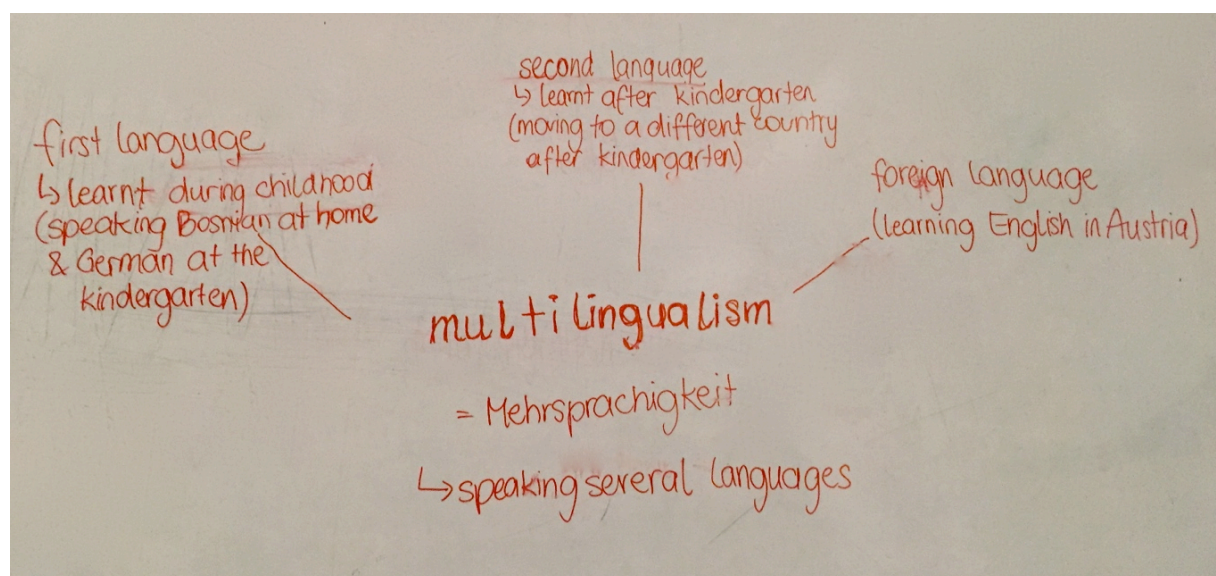 first language
↳ learnt during childhood
(speaking Bosnian at home
& German at the
kindergarten)
second language
↳ learnt after kindergarten
(moving to a different country
after kindergarten)
foreign language
(learning English in Austria)
multilingualism
= Mehrsprachigkeit
↳ speaking several languages